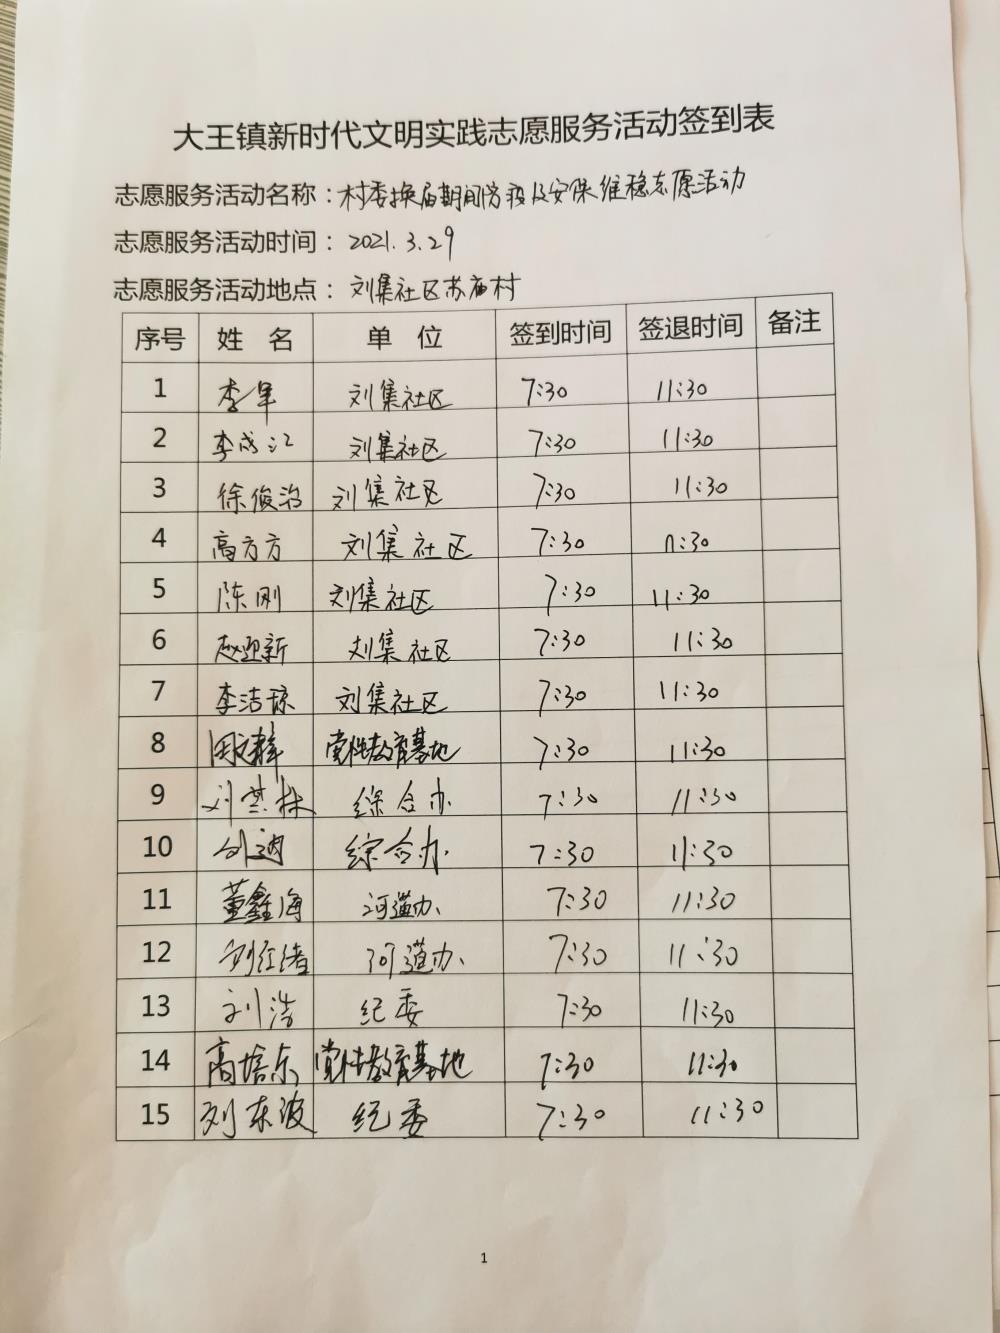 大王镇新时代文明实践志愿服务活动签到表
志愿服务活动名称：村委换届期间防疫及安保维稳志愿活动
志愿服务活动时间：2021.3.29
志愿服务活动地点：刘集社区苏庙村
序号 姓 名 单 位 签到时间 签退时间 备注
1 李军 刘集社区 7:30 11:30
2 李成江 刘集社区 7:30 11:30
3 徐俊治 刘集社区 7:30 11:30
4 高方方 刘集社区 7:30 11:30
5 陈刚 刘集社区 7:30 11:30
6 赵迎新 刘集社区 7:30 11:30
7 李洁琼 刘集社区 7:30 11:30
8 党性教育基地 7:30 11:30
9 综合办 7:30 11:30
10 综合办 7:30 11:30
11 董鑫海 河道办 7:30 11:30
12 河道办 7:30 11:30
13 刘浩 纪委 7:30 11:30
14 党性教育基地 7:30 11:30
15 刘东波 纪委 7:30 11:30
1